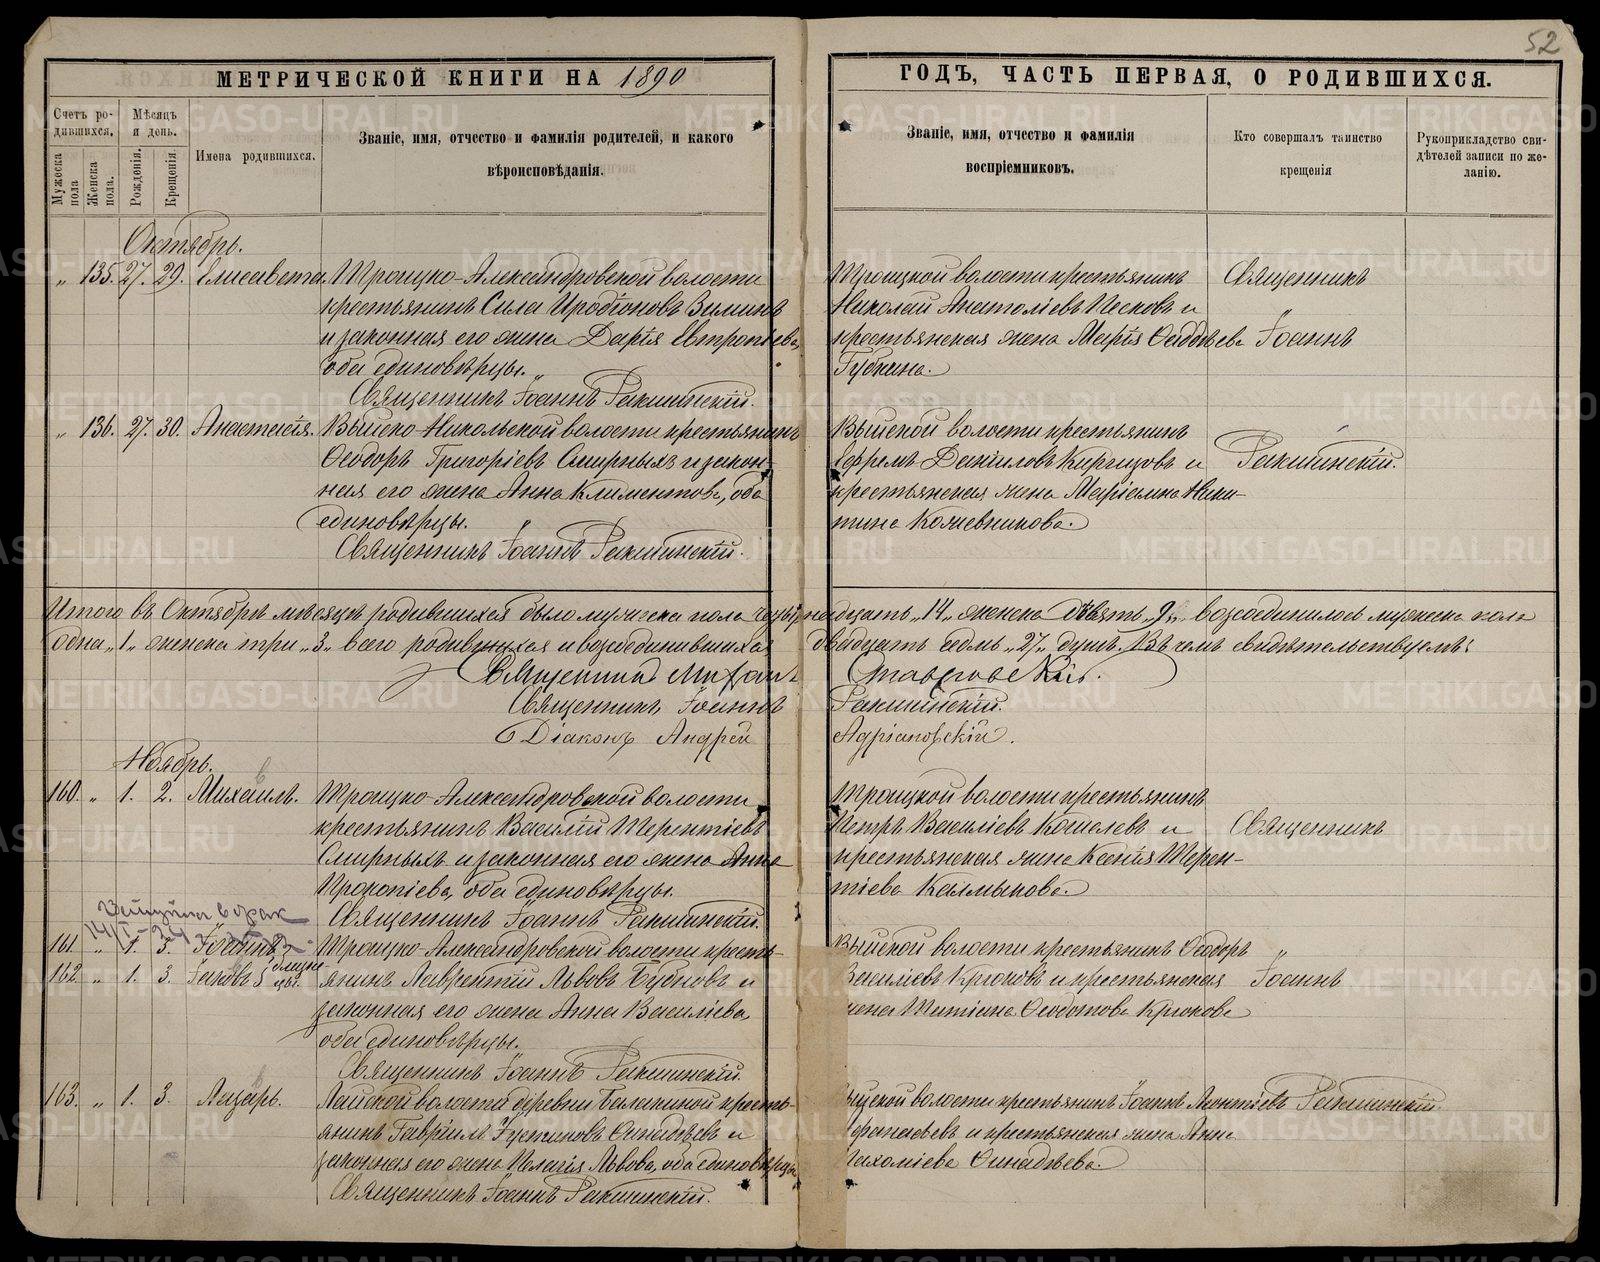 52
МЕТРИЧЕСКОЙ КНИГИ НА 1890
ГОДЪ, ЧАСТЬ ПЕРВАЯ, О РОДИВШИХСЯ.
Счетъ родившихся.
Мужеска пола
Женска пола.
Мѣсяцъ и день.
Рожденія.
Крещенія.
Имена родившихся.
Званіе, имя, отчество и фамилія родителей, и какого вѣроисповѣданія.
Званіе, имя, отчество и фамилія воспріемниковъ.
Кто совершалъ таинство крещенія
Рукоприкладство свидѣтелей записи по желанію.
Октябрь.
„ 135. 27. 29. Елисавета. Троицко-Александровской волости
крестьянинъ Сила Иродіоновъ Зиминъ
и законная его жена Дарія Евтропіева,
оба единовѣрцы.
Священникъ Іоаннъ Ракшинскій.
Троицкой волости крестьянинъ
Николай Анатоліевъ Песковъ и
крестьянская жена Марія Ѳаддѣева
Губкина.
Священникъ
Іоаннъ
Ракшинскій.
„ 136. 27. 30. Анастасія. Выйско-Никольской волости крестьянинъ
Ѳеодоръ Григоріевъ Смирныхъ и закон-
ная его жена Анна Климентова, оба
единовѣрцы.
Священникъ Іоаннъ Ракшинскій.
Выйской волости крестьянинъ
Ефремъ Даниловъ Киргизовъ и
крестьянская жена Маріамна Ники-
тина Кожевникова.
Итого въ Октябрѣ мѣсяцѣ родившихся было мужеска пола четырнадцать „14„ женска девять „9„, возсоединилось мужеска пола
одна „1„ женска три „3„ всего родившихся и возсоединившихся двадцать семь „27„ душъ. Въ чемъ свидѣтельствуемъ:
Священникъ Михаилъ Ставровскій.
Священникъ Іоаннъ Ракшинскій.
Діаконъ Андрей Адріановскій.
Ноябрь.
160. „ 1. 2. Михаилъ. Троицко-Александровской волости
крестьянинъ Василій Терентіевъ
Смирныхъ и законная его жена Анна
Прокопіева, оба единовѣрцы.
Священникъ Іоаннъ Ракшинскій.
Троицкой волости крестьянинъ
Петръ Василіевъ Кошелевъ и
крестьянская жена Ксенія Терен-
тіева Калмыкова.
Священникъ
Іоаннъ
Ракшинскій.
161 „ 1. 3. Іоаннъ
162 „ 1. 3. Іаковъ близне-
цы.
Троицко-Александровской волости кресть-
янинъ Лаврентій Львовъ Бубновъ и
законная его жена Анна Василіева,
оба единовѣрцы.
Священникъ Іоаннъ Ракшинскій.
Выйской волости крестьянинъ Ѳеодоръ
Василіевъ Крюковъ и крестьянская
жена Татіана Ѳеодотова Крюкова
163. „ 1. 3. Лазарь. Лайской волости деревни Балакиной кресть-
янинъ Гавріилъ Іустиновъ Ѳинадѣевъ и
законная его жена Пелагія Львова, оба единовѣрцы
Священникъ Іоаннъ Ракшинскій.
волости крестьянинъ Іоаннъ Леонтіевъ
и крестьянская жена Анна
Пахоміева Ѳинадѣева.
METRIKI.GASO-URAL.RU